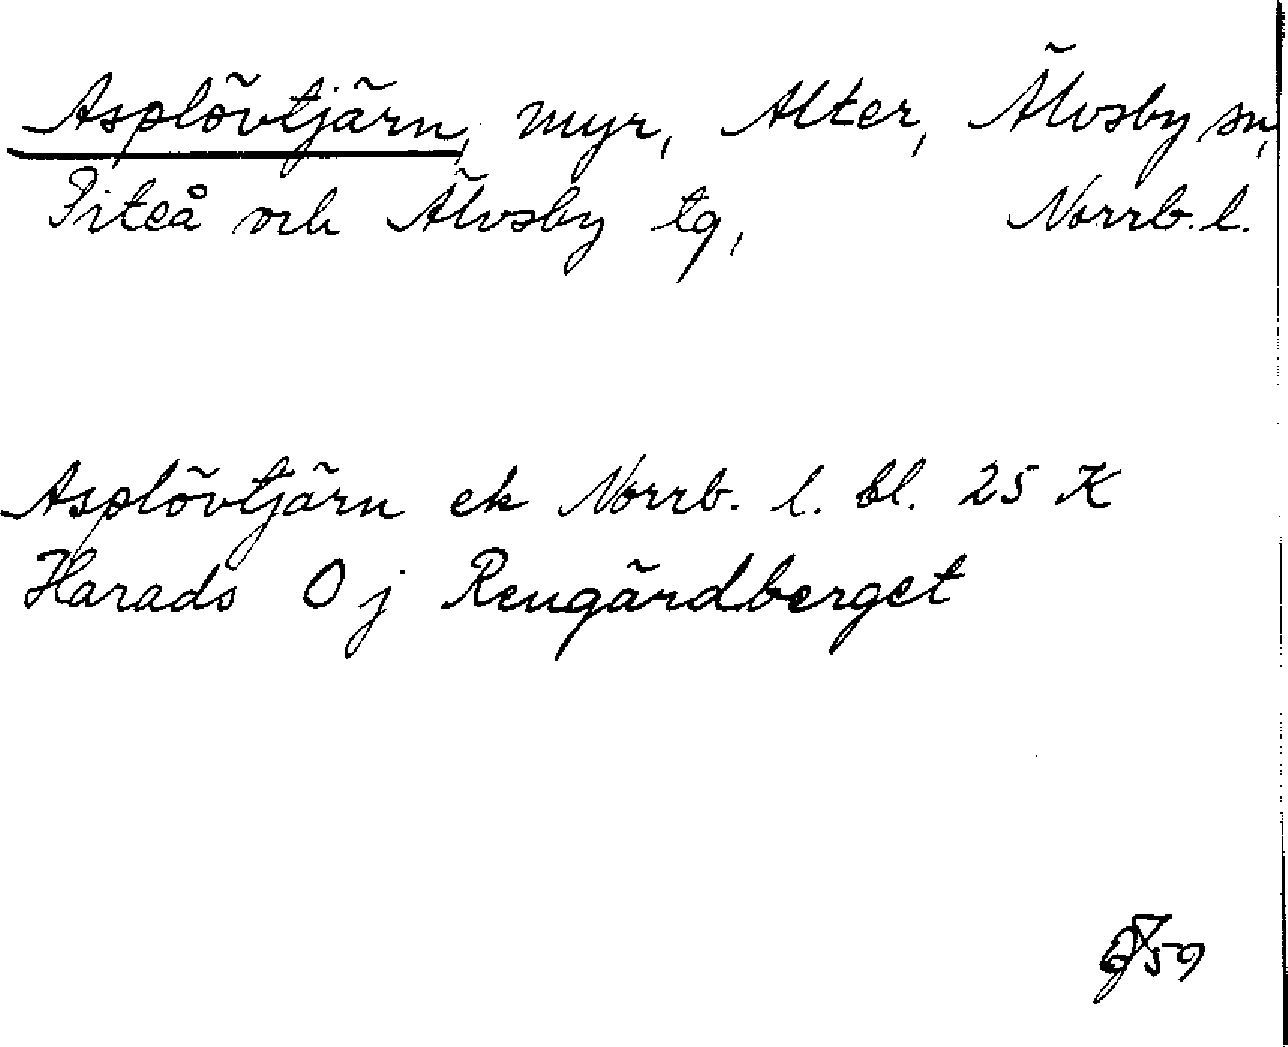 Asplövtjärn, myr, Alter, Älvsby sn,
Piteå och Älvsby tg, Norrb. l.
Asplövtjärn ek Norrb. l. bl. 25 K
Harads 0 j Rengärdberget